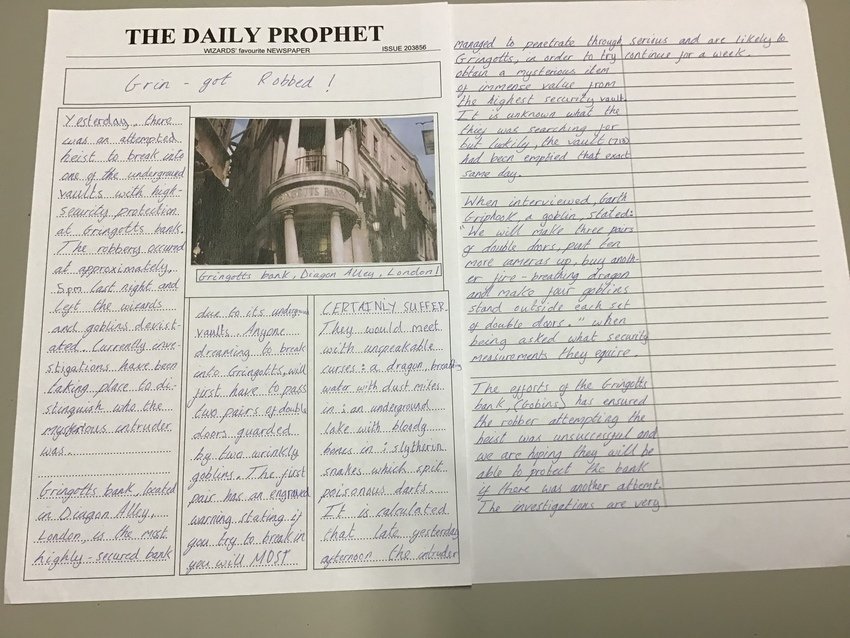 THE DAILY PROPHET
WIZARDS' favourite NEWSPAPER
ISSUE 203856
Grin - got Robbed !
Yesterday, there
was an attempted
heist to break into
one of the underground
vaults with high-
security protection
at Gringotts bank.
The robbery occured
at approximately,
5pm last night and
left the wizards
and goblins devist-
ated. Currently inve-
stigations have been
taking place to di-
stinguish who the
mysterious intruder
was.
Gringotts bank, located
in Diagon Alley,
London, is the most
highly-secured bank
GRINGOTTS BANK
Gringotts bank, Dragon Alley, London!
due to its underground
vaults. Anyone
dreaming to break
into Gringotts, will
just have to pass
two pairs of double
doors guarded
by two wrinkly
goblins. The first
pair has an engraved
warning stating if
you try to break in
you will MOST
CERTAINLY SUFFER.
They would meet
with unspeakable
curses: a dragon, breathing
water with dust mites
in; an underground
lake with bloody
bones in; slytherin
snakes which spit
poisonous darts.
It is calculated
that late yesterday
afternoon the intruder
managed to penetrate through
Gringotts, in order to try
obtain a mysterious item
of immense value from
the highest security vault.
It is unknown what the
they was searching for
but luckily, the vault (713)
had been emptied that exact
same day.
When interviewed, Garth
Griphook, a goblin, stated:
"We will make three pairs
of double doors, put ten
more cameras up, buy anoth-
er fire-breathing dragon
and make four goblins
stand outside each set
of double doors." when
being asked what security
measurements they equire.
The efforts of the Gringotts
bank, (Gobins) has ensured
the robber attempting the
heist was unsuccessful and
we are hoping they will be
able to protect the bank
if there was another attemt.
The investigations are very
serious and are likely to
continue for a week.